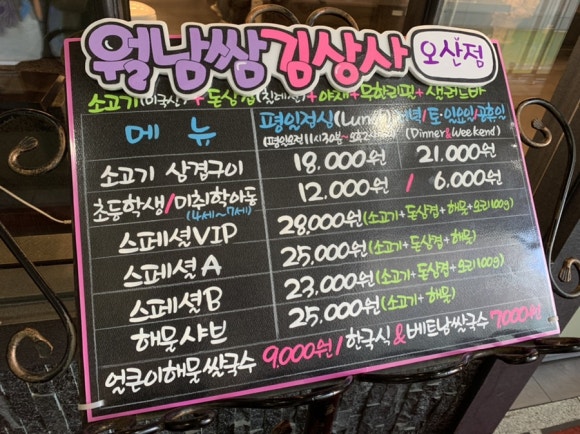 월남쌈김상사 오산점
소고기(미국산)+돈삼겹(칠레산)+야채+무한리필+샐러드바
메뉴 평일점심(Lunch) 저녁/토·일요일/공휴일
(Dinner&Weekend)
소고기 삼겹구이 18.000원 21.000원
초등학생/미취학아동 12.000원 / 6.000원
(4세~7세)
스페셜VIP 28.000원(소고기+돈삼겹+해물+오리100g)
스페셜A 25.000원(소고기+돈삼겹+해물)
스페셜B 23.000원(소고기+돈삼겹+오리100g)
해물샤브 25.000원(소고기+해물)
얼큰이해물쌀국수 9.000원/한국식&베트남쌀국수 7.000원